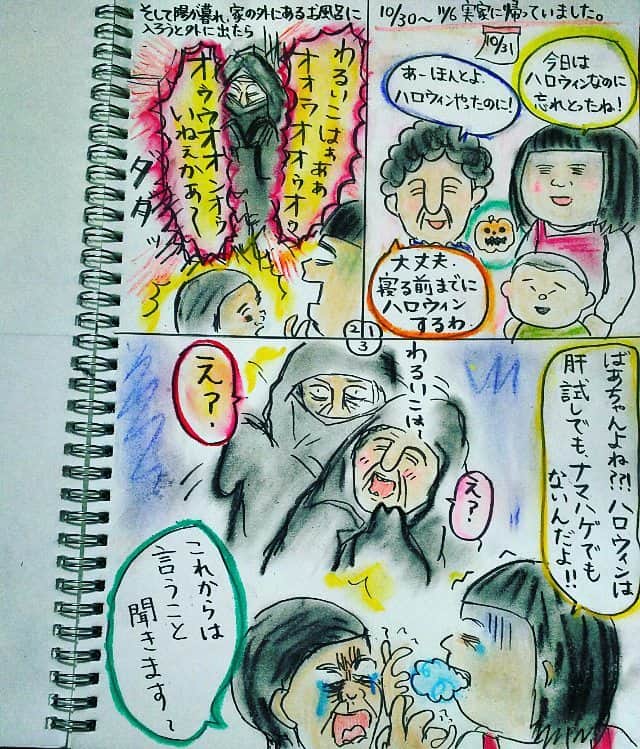 10/30〜11/6 実家に帰っていました。
10/31
今日は
ハロウィンなのに
忘れとったね!
あーほんとよ、
ハロウィンやったのに!
大丈夫、
寝る前までに
ハロウィン
するわ
そして陽が暮れ、家の外にあるお風呂に
入ろうと外に出たら
わるいこはぁぁぁ
オオゥオオゥオ
オゥウオオンオゥ
いねぇかぁ〜
ダダダッ
2 1
3
わるいこは〜
え?
え?
ばあちゃんよね??!ハロウィンは
肝試しでも、ナマハゲでも
ないんだよ!!
これからは
言うこと
聞きます〜